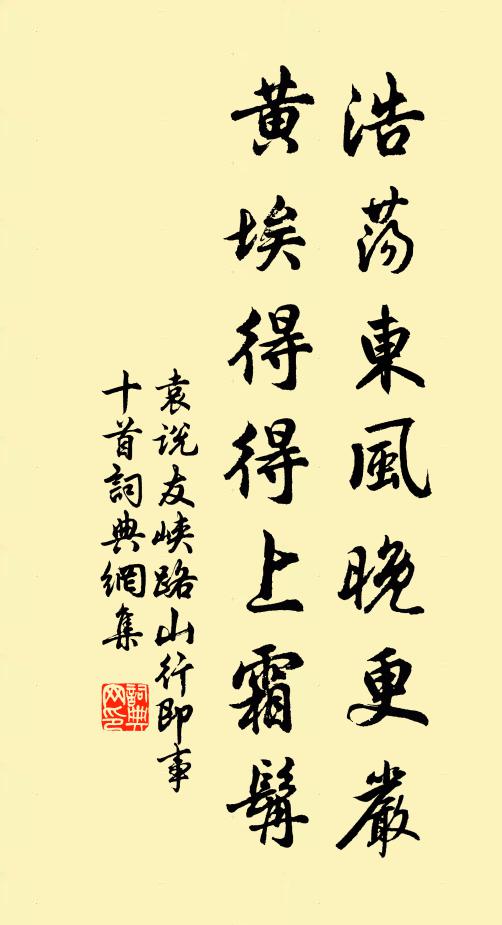 浩蕩東風晚更嚴
黄埃得得上霜髯
袁说友峽路山行即事
十首詞典網集
詞典网印